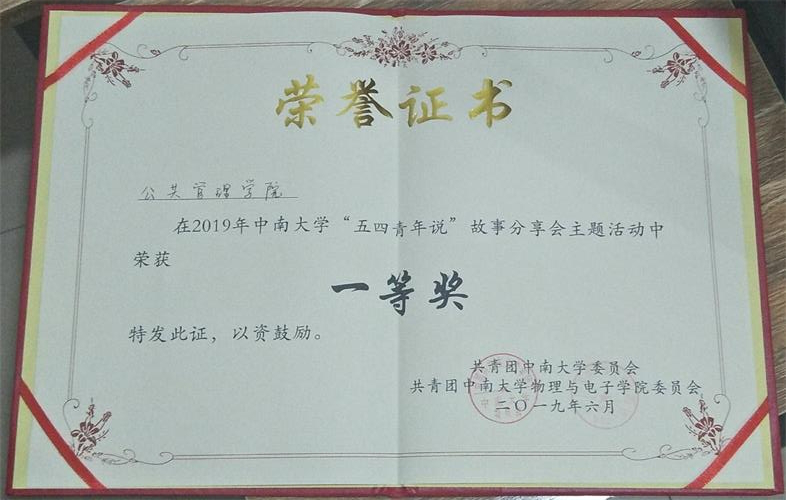 荣誉证书
公共管理学院
在2019年中南大学“五四青年说”故事分享会主题活动中
荣获
一等奖
特发此证，以资鼓励。
共青团中南大学委员会
共青团中南大学物理与电子学院委员会
二〇一九年六月